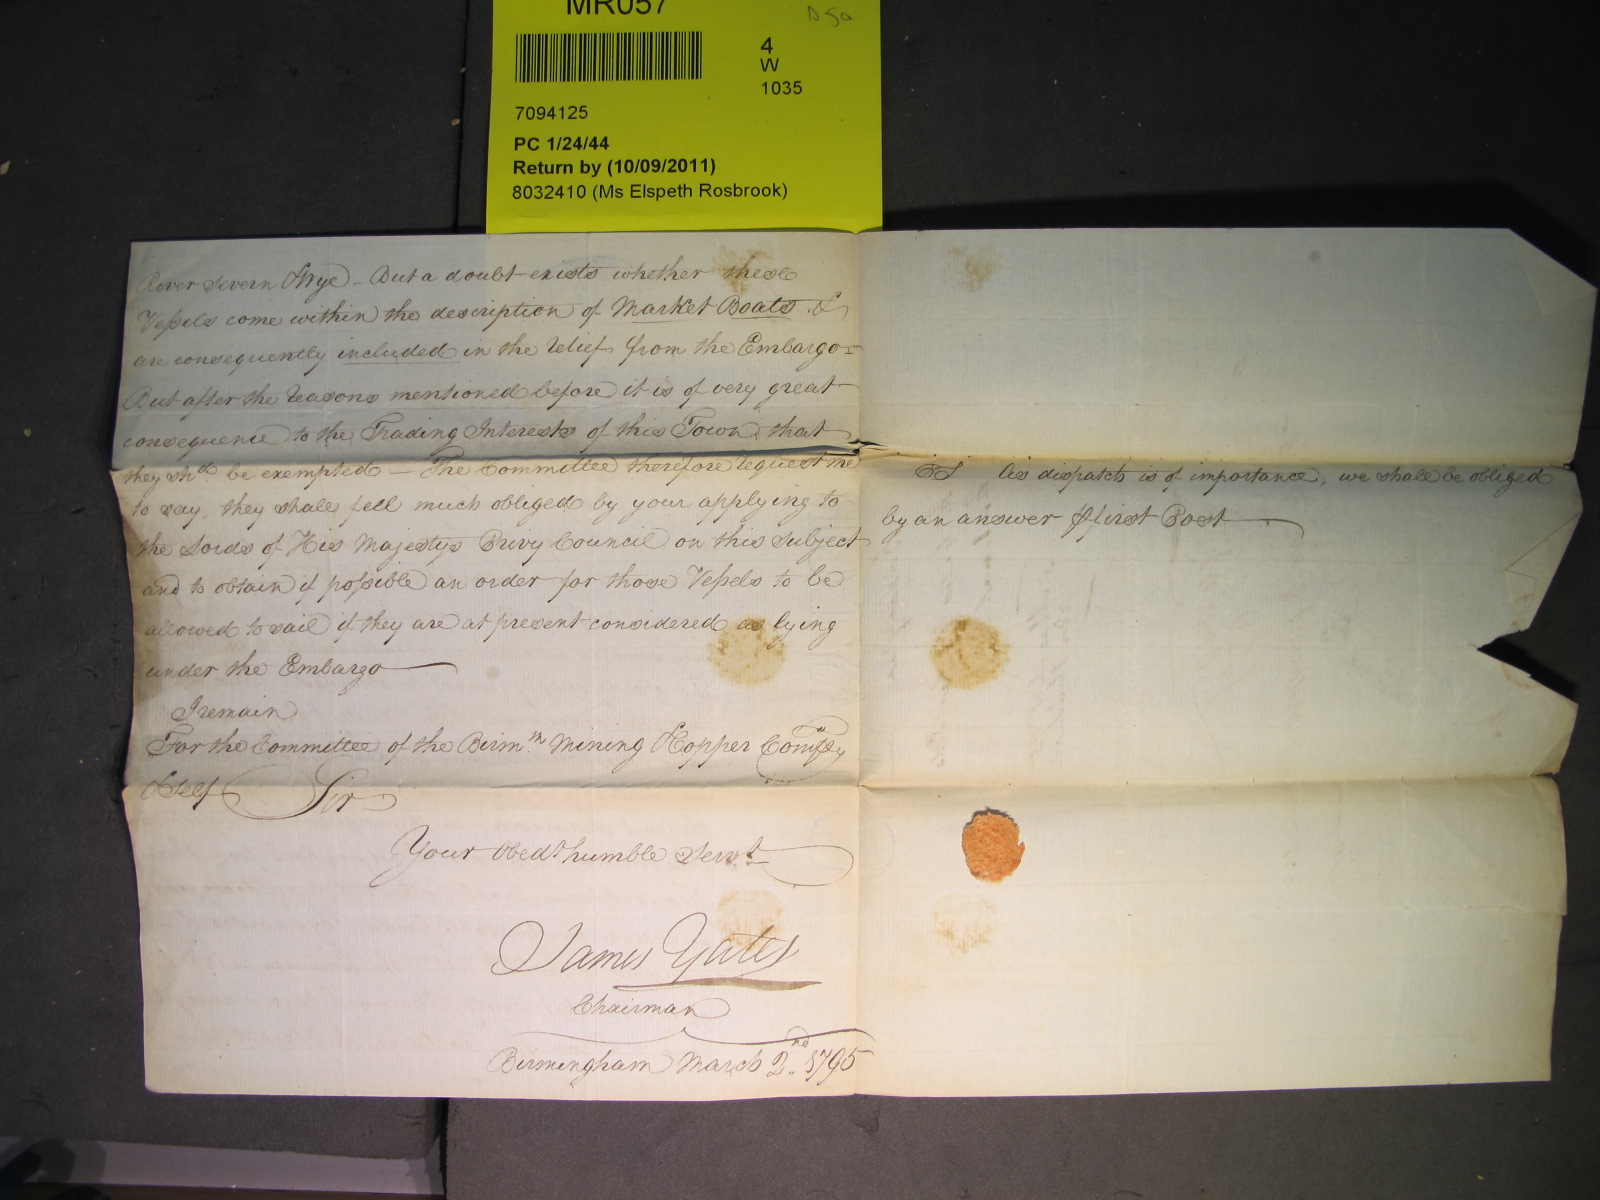 MR057
D50
4
W
1035
7094125
PC 1/24/44
Return by (10/09/2011)
8032410 (Ms Elspeth Rosbrook)
River Severn & Wye - But a doubt exists whether these
Vessels come within the description of Market Boats. &
are consequently included in the relief from the Embargo=
But after the reasons mentioned before it is of very great
consequence to the Trading Interests of this Town, that
they shd. be exempted - The Committee therefore request me
to say, they shall feel much obliged by your applying to
the Lords of His Majestys Privy Council on this Subject
and to obtain if possible an order for those Vessels to be
allowed to sail if they are at present considered as lying
under the Embargo
I remain
For the Committee of the Birm.m Mining & Copper Compy
& self Sir
Your obedt humble Servt
James Yates
Chairman
Birmingham March 2nd 1795
PS As dispatch is of importance, we shall be obliged
by an answer P first Post